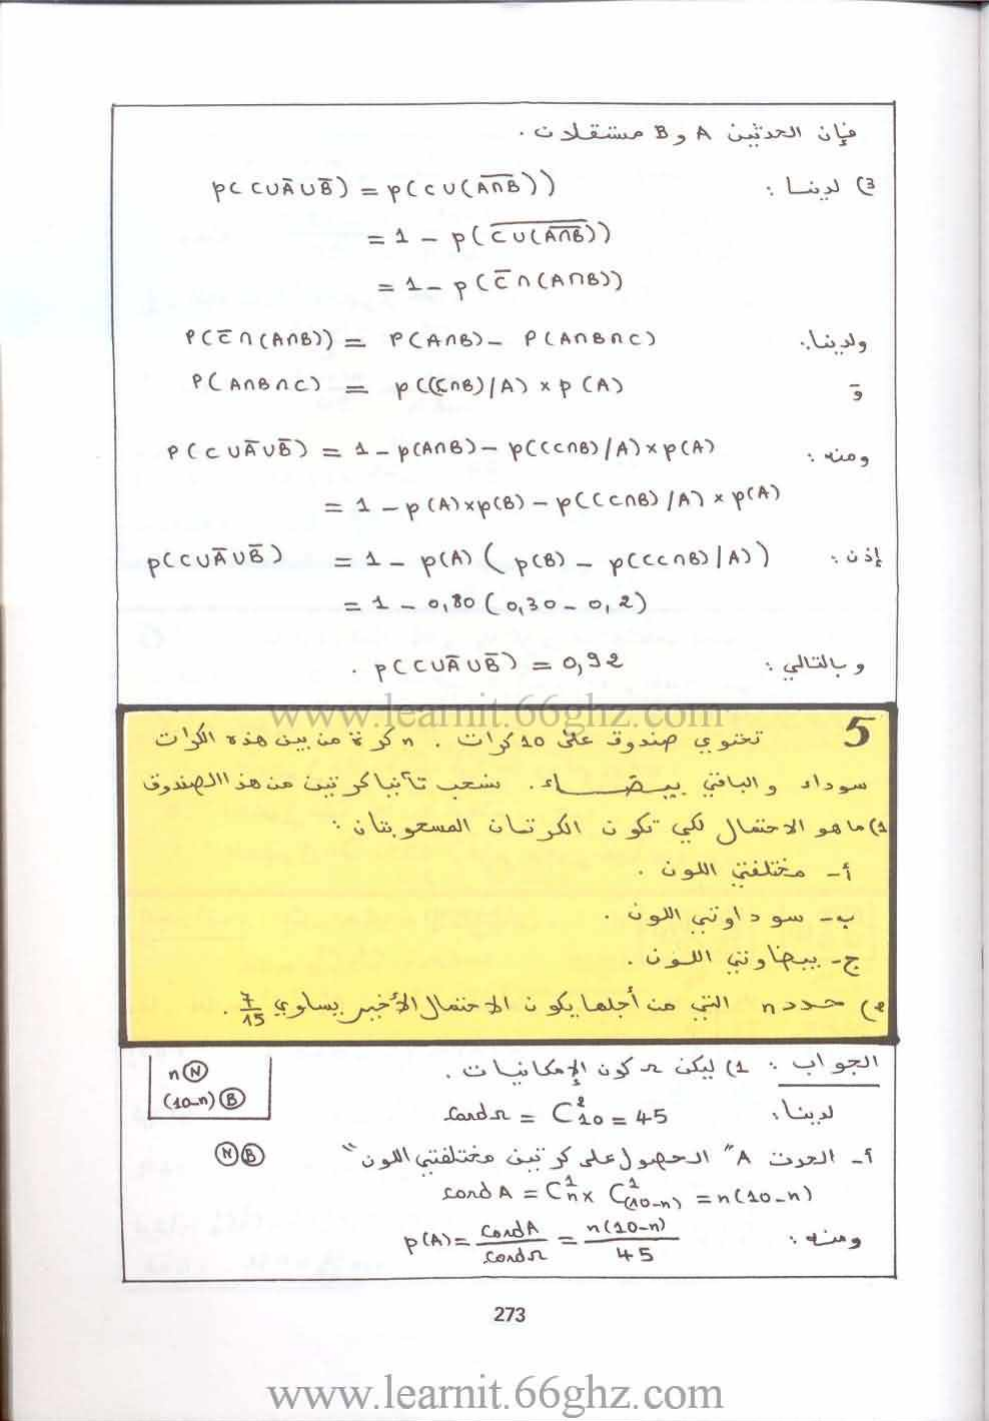 فإن الحدثين A و B مستقلان .
3) لدينا : p(C∪Ā∪B̅) = p(C∪(A∩B)̅)
= 1 - p(C∪(A∩B)̅)̅
= 1 - p(C̅∩(A∩B))
ولدينا: P(C̅∩(A∩B)) = P(A∩B) - P(A∩B∩C)
و P(A∩B∩C) = p((C∩B)/A) × p(A)
ومنه : P(C∪Ā∪B̅) = 1 - p(A∩B) - p((C∩B)/A) × p(A)
= 1 - p(A)×p(B) - p((C∩B)/A) × p(A)
إذن : p(C∪Ā∪B̅) = 1 - p(A) ( p(B) - p((C∩B)/A))
= 1 - 0,80 (0,30 - 0,2)
وبالتالي : p(C∪Ā∪B̅) = 0,92 .
www.learnit.66ghz.com
5 تحتوي صندوق على 10 كرات . n كرة من بين هذه الكرات
سوداء والباقي بيضاء . نسحب تآنيا كرتين من هذا الصندوق
1) ما هو الاحتمال لكي تكون الكرتان المسحوبتان :
أ- مختلفتي اللون .
ب- سوداوتي اللون .
ج- بيضاوتي اللون .
2) حدد n التي من أجلها يكون الاحتمال الأخير يساوي 7/15 .
الجواب : 1) ليكن Ω كون الإمكانيات .
n Ⓝ
(10-n) Ⓑ
لدينا: card Ω = C²₁₀ = 45
أ- الحدث A "الحصول على كرتين مختلفتي اللون" ⓃⒷ
card A = C¹ₙ × C¹₍₁₀₋ₙ₎ = n(10-n)
ومنه : p(A) = card A / card Ω = n(10-n) / 45
273
www.learnit.66ghz.com